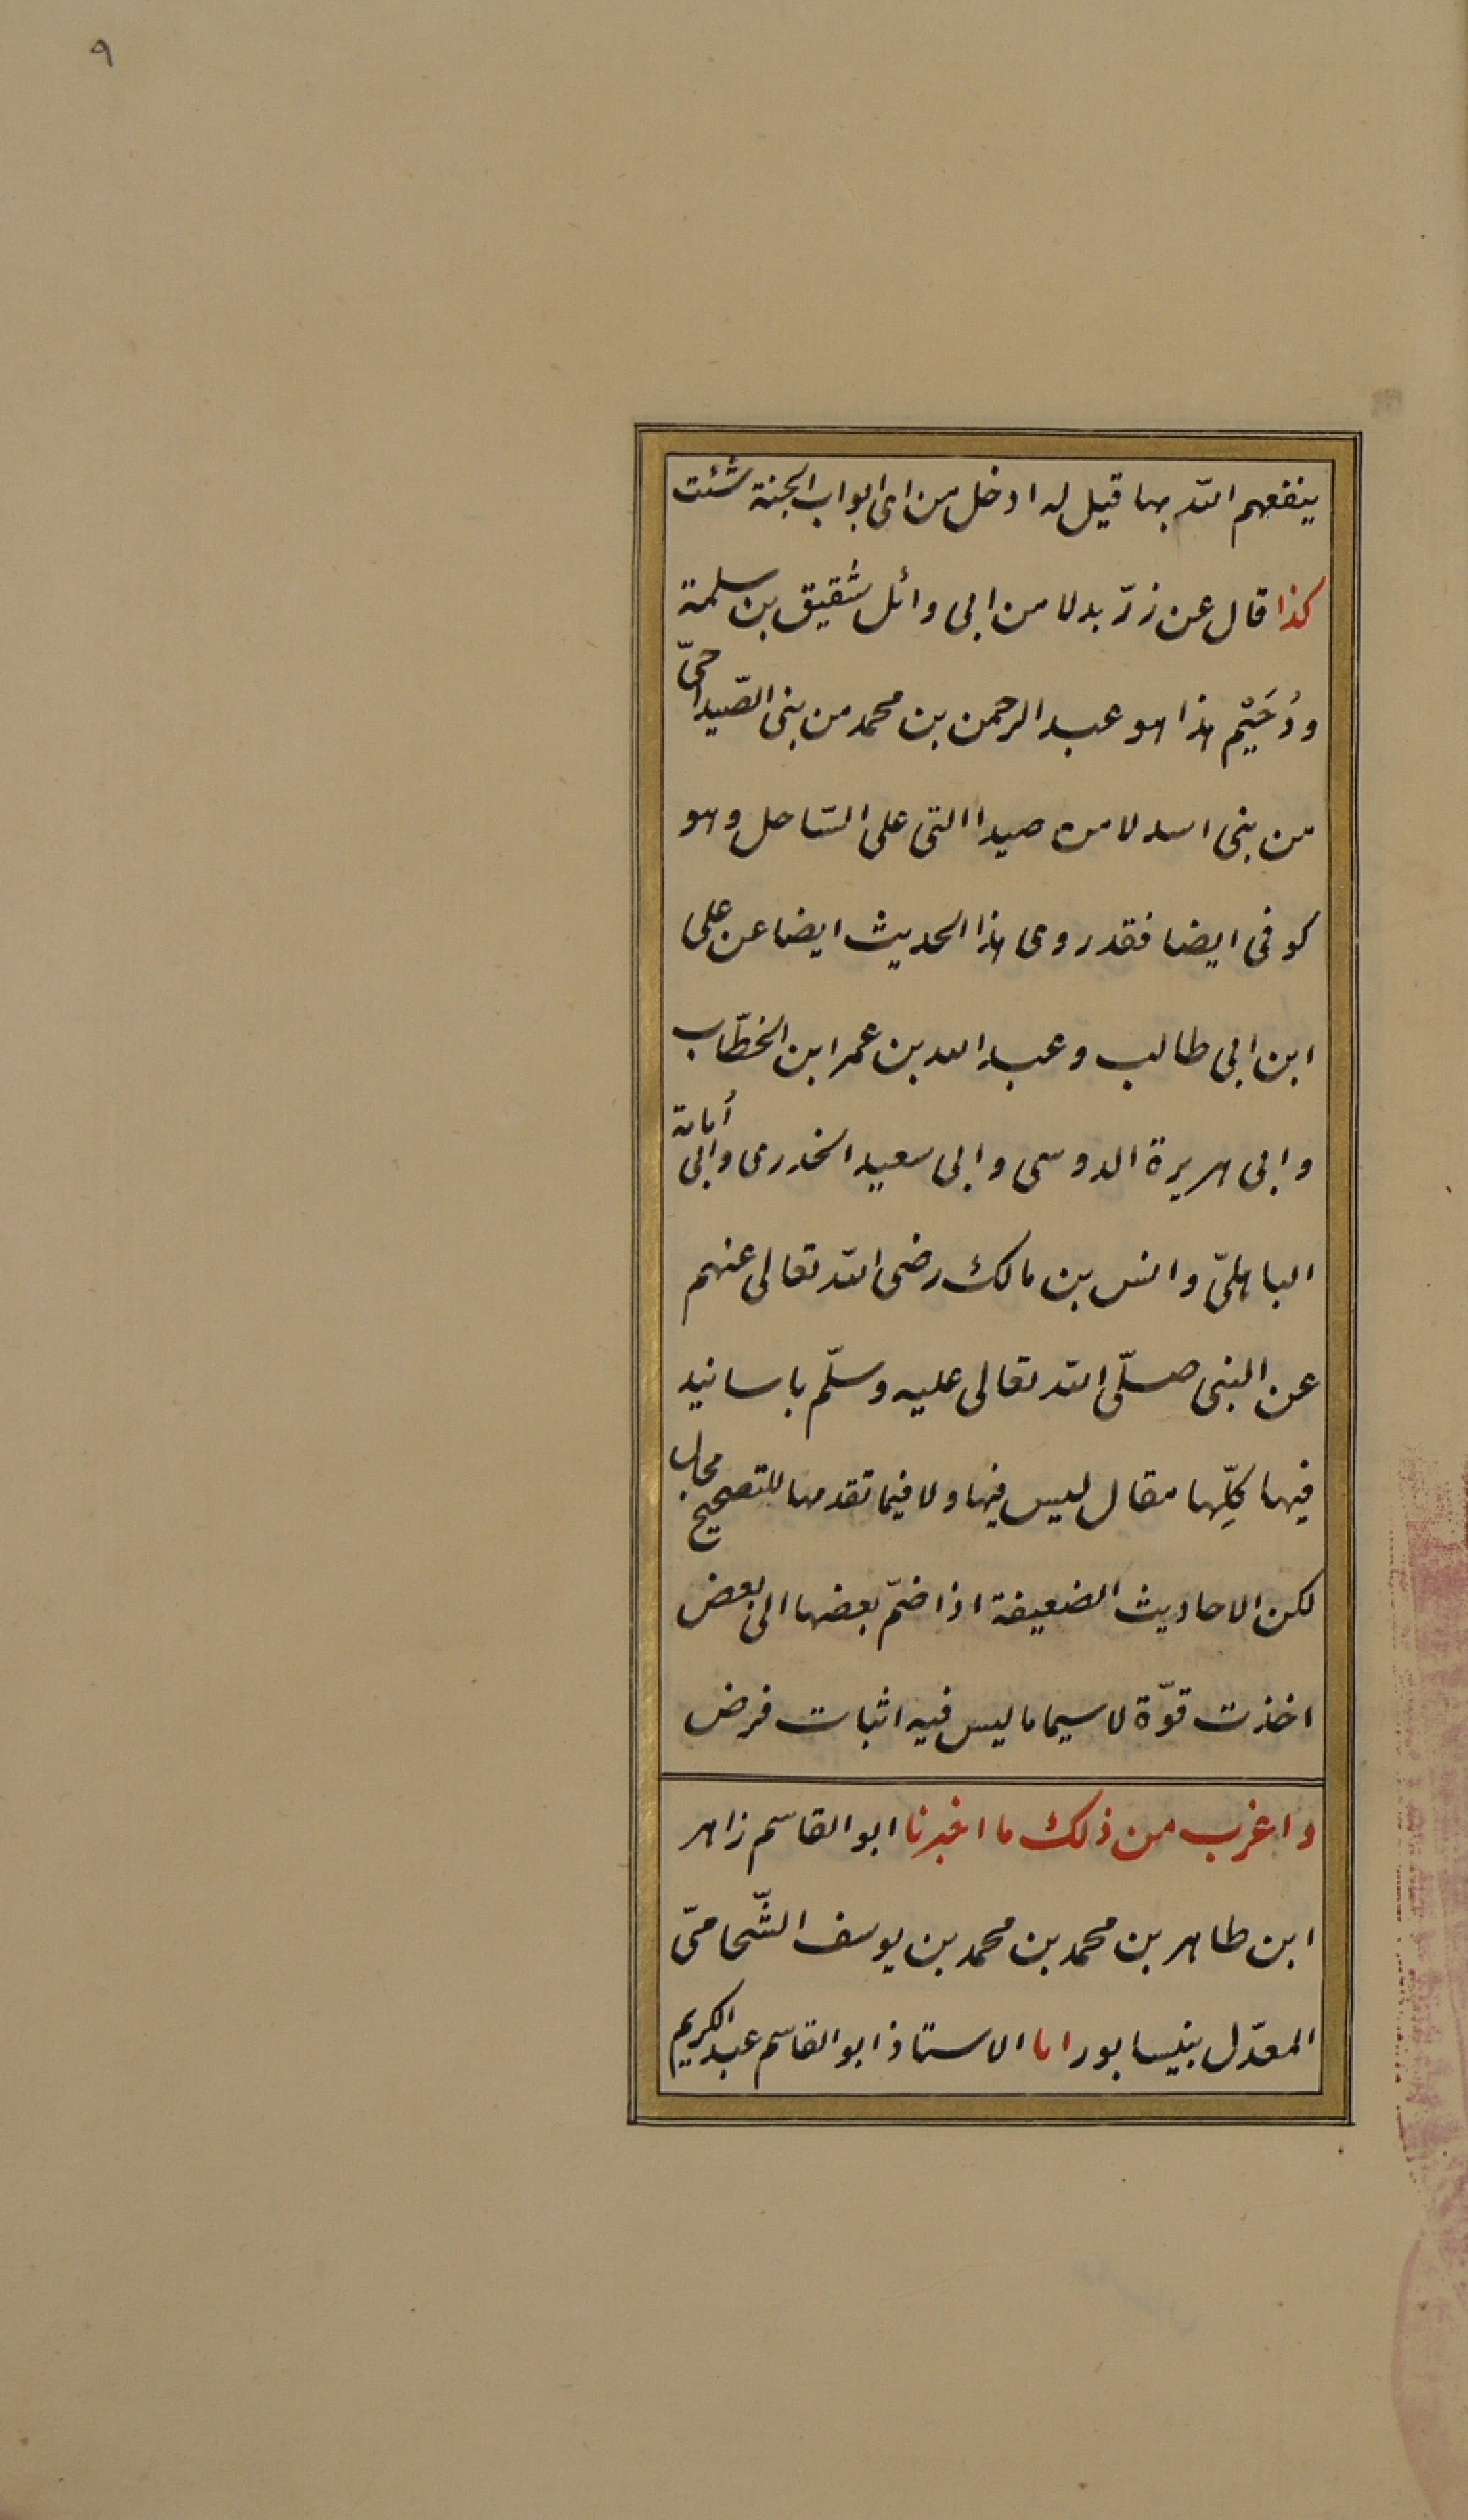 ٩
ينفعهم الله بها قيل له ادخل من اى ابواب الجنة شئت
كذا قال عن زرّ بدلا من ابى وائل شقيق بن سلمة
ودُحَيْم هذا هو عبد الرحمن بن محمد من بنى الصّيدا حىّ
من بنى اسد لا من صيدا التى على السّاحل وهو
كوفى ايضا فقد روى هذا الحديث ايضا عن على
ابن ابى طالب وعبد الله بن عمر ابن الخطّاب
وابى هريرة الدوسى وابى سعيد الخدرى وابى أمامة
الباهلىّ وانس بن مالك رضى الله تعالى عنهم
عن النبى صلّى الله تعالى عليه وسلّم باسانيد
فيها كلّها مقال ليس فيها ولا فيما تقدمها للتصحيح مجال
لكن الاحاديث الضعيفة اذا ضمّ بعضها الى بعض
اخذت قوّة لا سيما ما ليس فيه اثبات فرض
واغرب من ذلك ما اخبرنا ابو القاسم زاهر
ابن طاهر بن محمد بن محمد بن يوسف الشّحامىّ
المعدّل بنيسابور انا الاستاذ ابو القاسم عبد الكريم